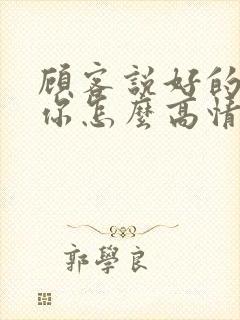 顧客說好的
你怎麼高情
郭學良